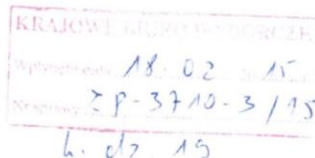 KRAJOWE BIURO WYBORCZE
Wpłynęło dnia 18.02 15
Nr sprawy ZP-3710-3/15
L. dz. 19